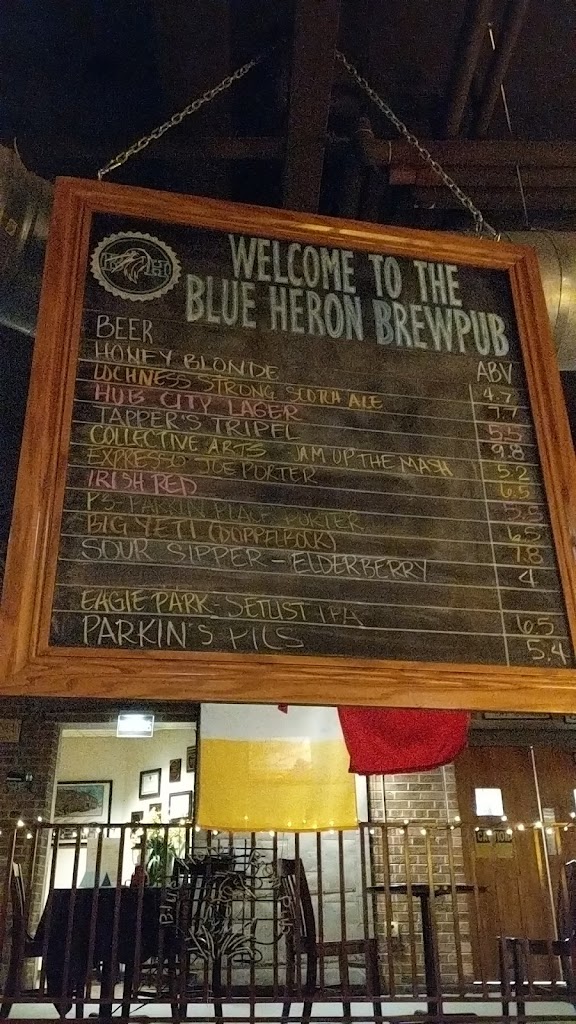 B H
WELCOME TO THE
BLUE HERON BREWPUB
BEER ABV
HONEY BLONDE 4.7
LOCHNESS STRONG SCOTCH ALE 7.7
HUB CITY LAGER 5.5
TAPPER'S TRIPEL 9.8
COLLECTIVE ARTS JAM UP THE MASH 5.2
EXPRESSO JOE PORTER 6.5
IRISH RED 5.5
PARKIN PLACE PORTER 6.5
BIG YETI (DOPPELBOCK) 7.8
SOUR SIPPER - ELDERBERRY 4
EAGLE PARK - SETLIST IPA 6.5
PARKIN'S PILS 5.4